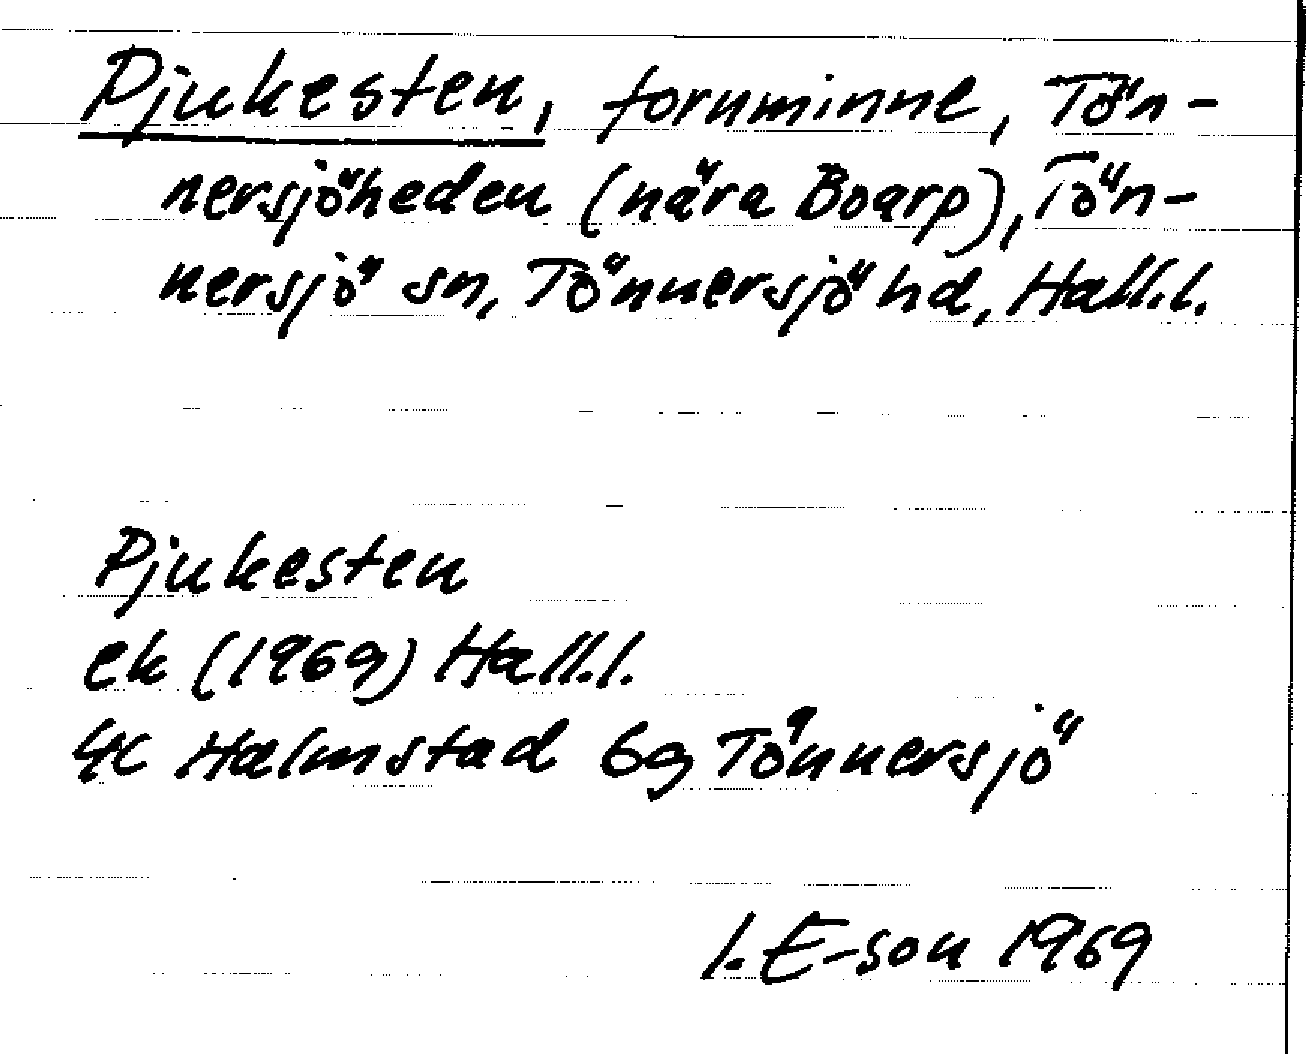 Pjukesten, fornminne, Tön-
nersjöheden (nära Boarp), Tön-
nersjö sn, Tönnersjö hd, Hall.l.
Pjukesten
ek (1969) Hall.l.
4C Halmstad 6g Tönnersjö
I. E-son 1969